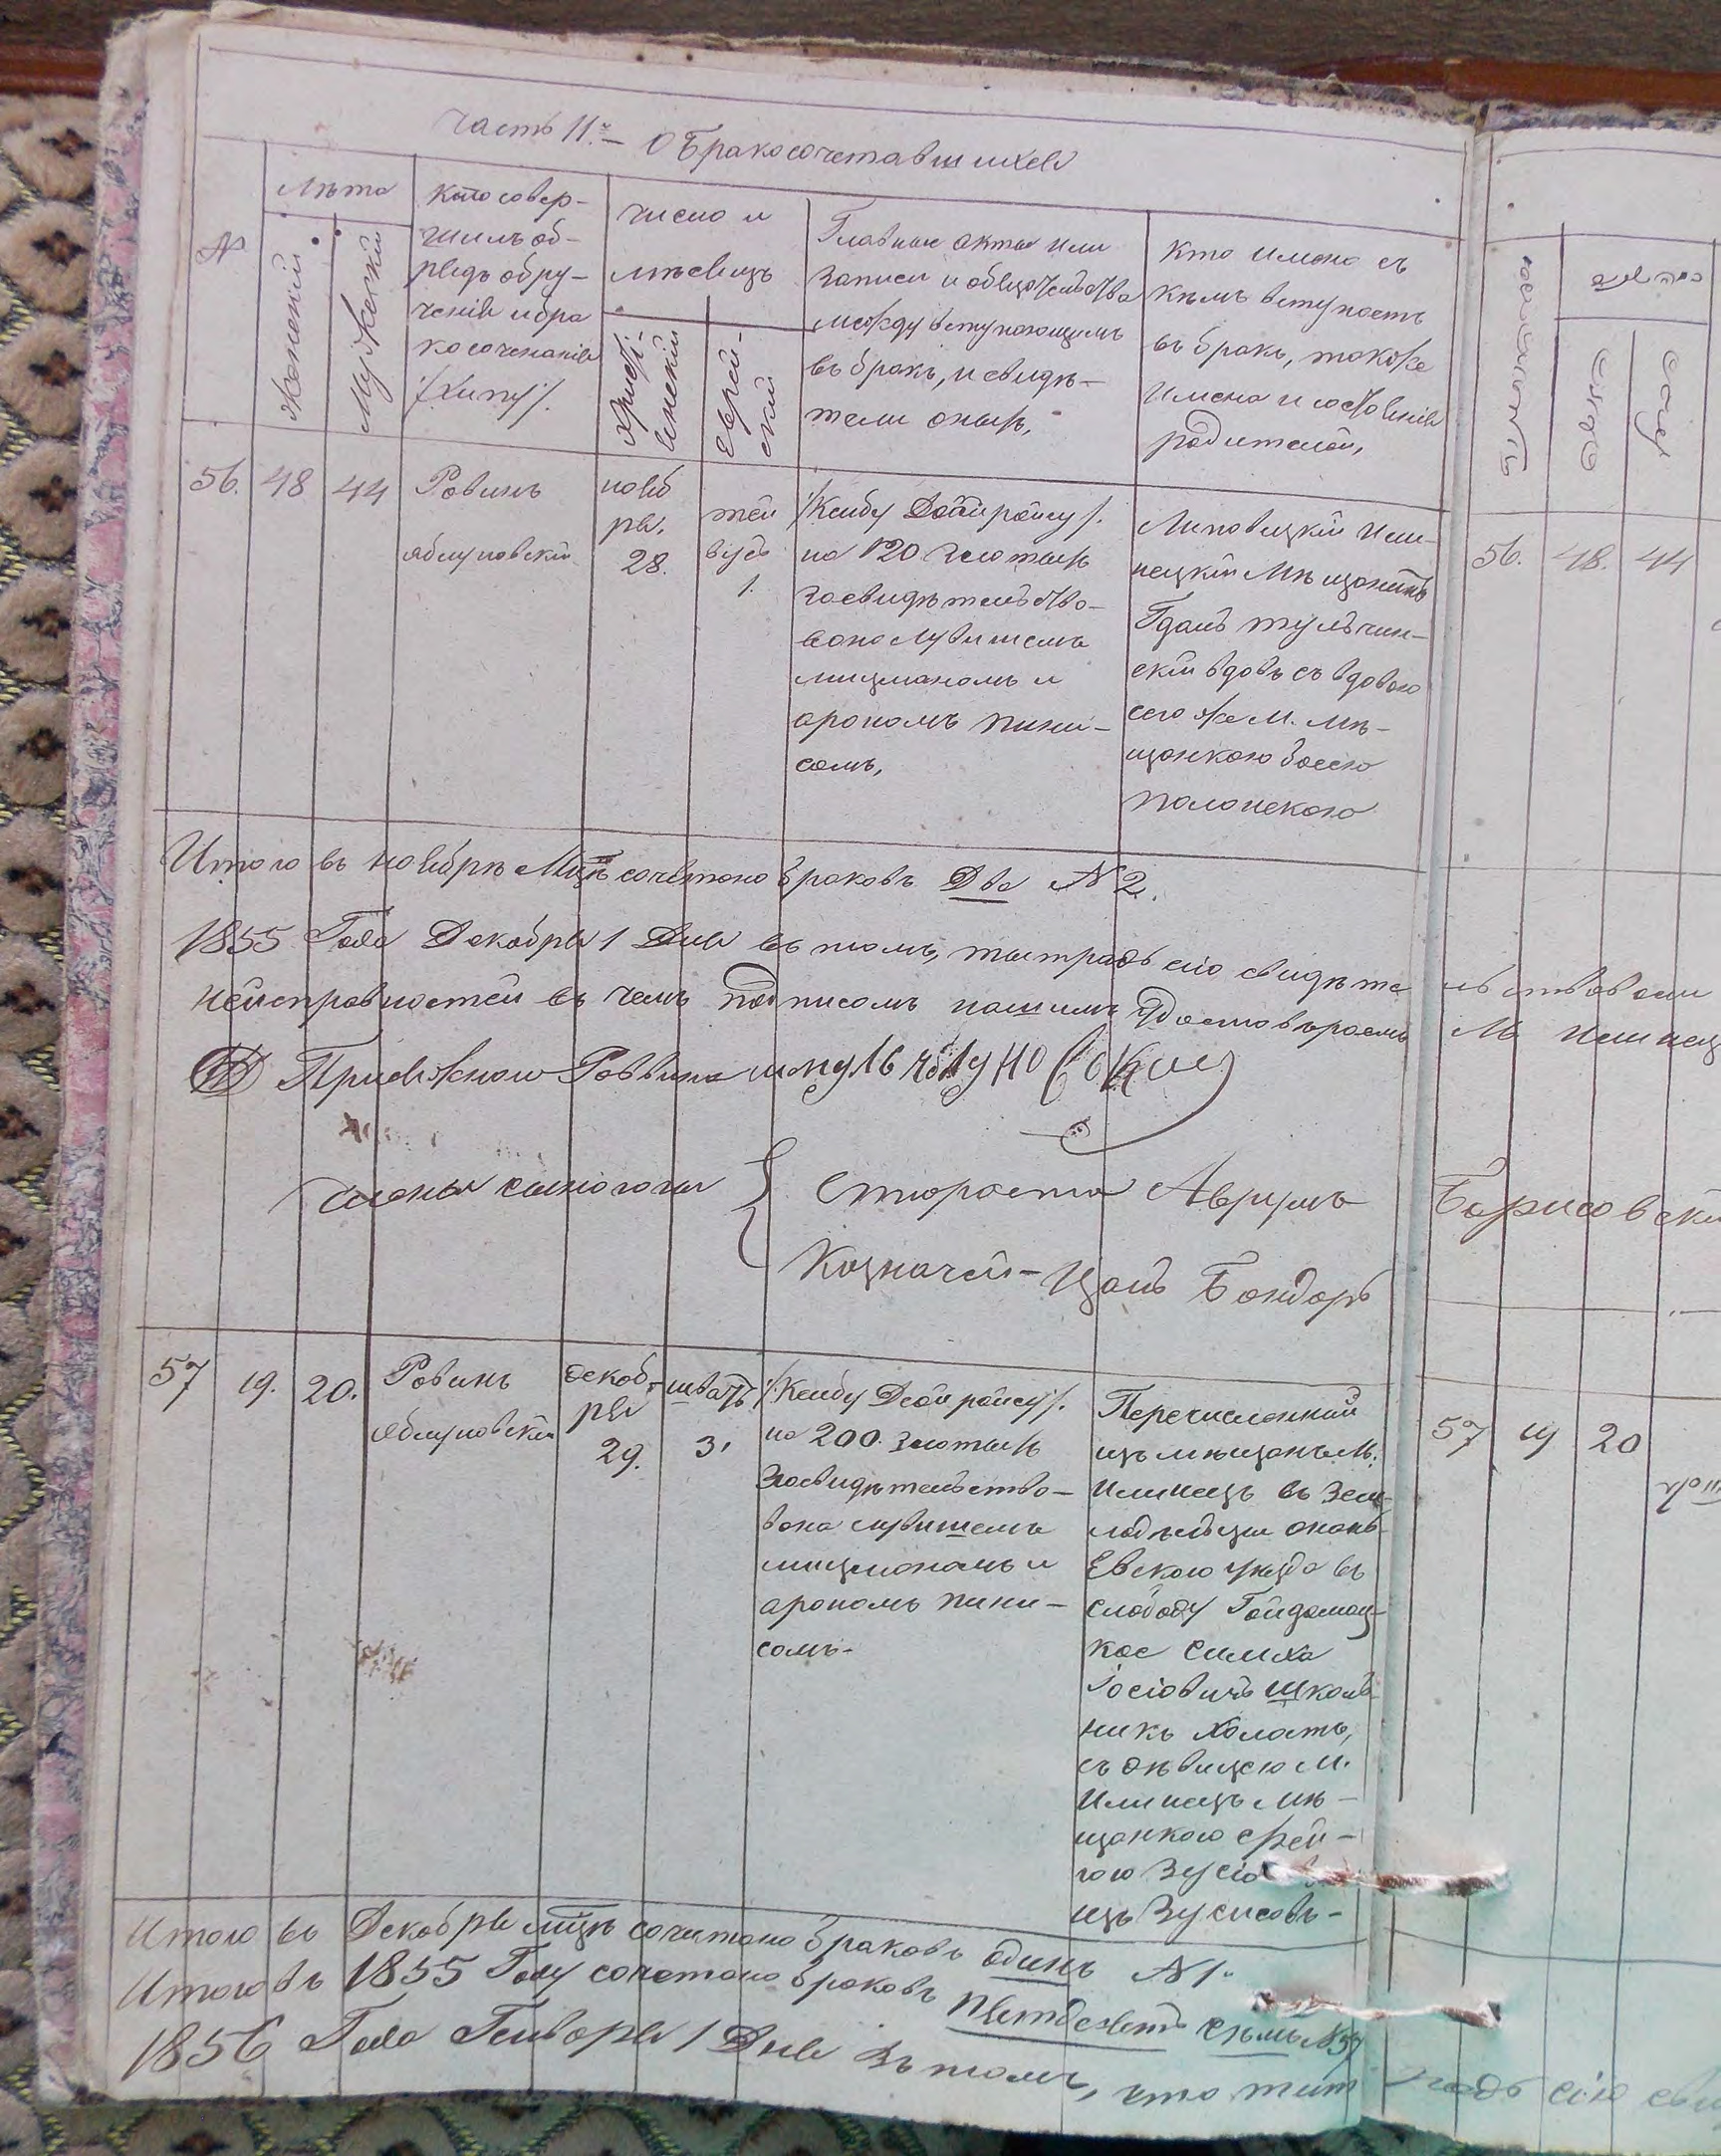 Часть IIя – О Бракосочетавшихся
№
Лѣта
Женскій
Мужескій
Кто совер-
шилъ об-
рядъ обру-
ченія и бра
косочетанія
/Хипу/.
Число и
мѣсяцъ
Христі-
янскій
Еврей-
скій
Главные Акты или
записи и обязательства
между вступающимъ
въ бракъ, и свидѣ-
тели оныхъ,
Кто имено съ
кѣмъ вступаетъ
въ бракъ, также
имена и состояніе
родителей,
56.
48
44
Равинъ
яблуновскій
нояб
ря.
28.
1.
/Ксибу Деойрайсу/.
на 120 злотыхъ
засвидѣтельство-
вано Мувишемъ
лицманомъ и
арономъ пини-
сомъ,
Липовицкій Или-
нецкій Мѣщанинъ
Гдаль тульчин-
скій вдовъ съ вдовою
сего же М. мѣ-
щанкою басею
полонскою
56.
48.
44
Итого въ ноябрѣ Мцѣ сочетано браковъ Два № 2.
1855 Года Декабря 1 Дня въ томъ, тытрадь сію свидѣте льствовали
неисправностей въ чемъ подписомъ нашимъ удостовѣраемъ М Илинец
Приляжною Раввина
члены синогоги
Староста Аврумъ Борисовскі
Казначей – Цаль Бондарь
57
19.
20.
Равинъ
яблуновскій
декаб
ря
29.
шватъ
3.
/Ксибу Деойрайсу/.
на 200. злотыхъ
засвидѣтельство-
вана мувишемъ
лицманомъ и
арономъ пини-
сомъ-
Перечисленный
изъ мѣщанъ М.
Илинецъ въ зем-
ледѣльцы онань-
Евского уезда въ
слободу Гайдамац-
кое Симха
Іосіовичъ Школь-
никъ Холастъ,
съ дѣвицею М.
Илинецъ мѣ-
щанкою фрей-
гою Зусіо
изъ Зусисовъ-
57
19
20
Итого въ Декабря мцѣ сочетано браковъ одинъ № 1.
Итого въ 1855 Году сочетано браковъ пятдесятъ семь № 57
1856 Года Генворя 1 Дня въ томъ, что тит радь сію сви